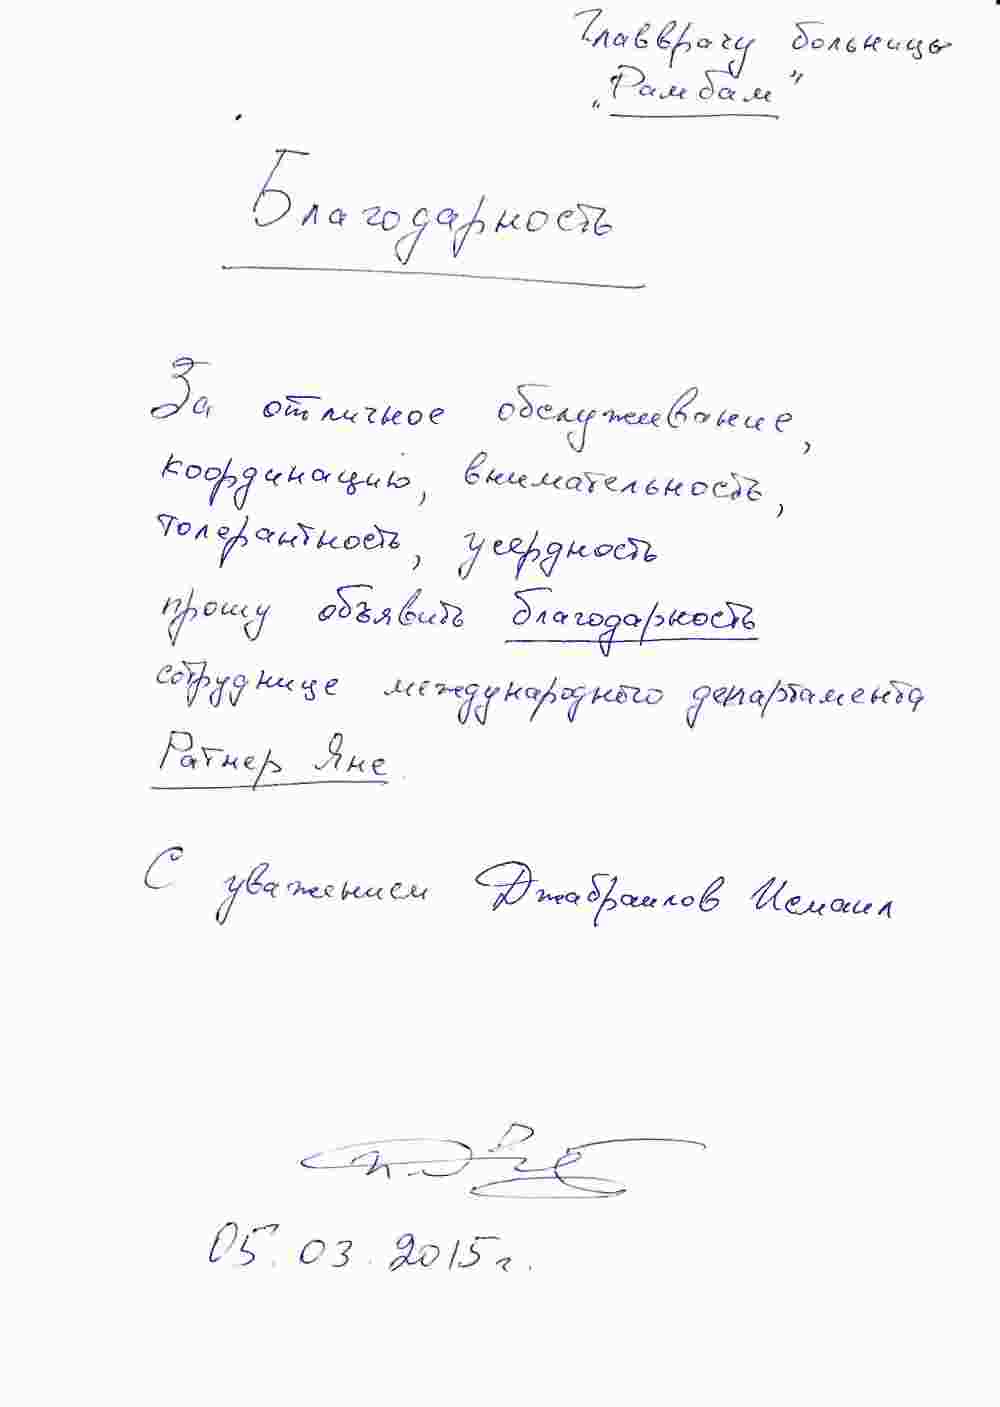 Главврачу больницы
„Рамбам"
Благодарность
За отличное обслуживание,
координацию, внимательность,
толерантность, усердность
прошу объявить благодарность
сотруднице международного департамента
Ратнер Яне.
С уважением Джабраилов Исмаил
05.03.2015г.